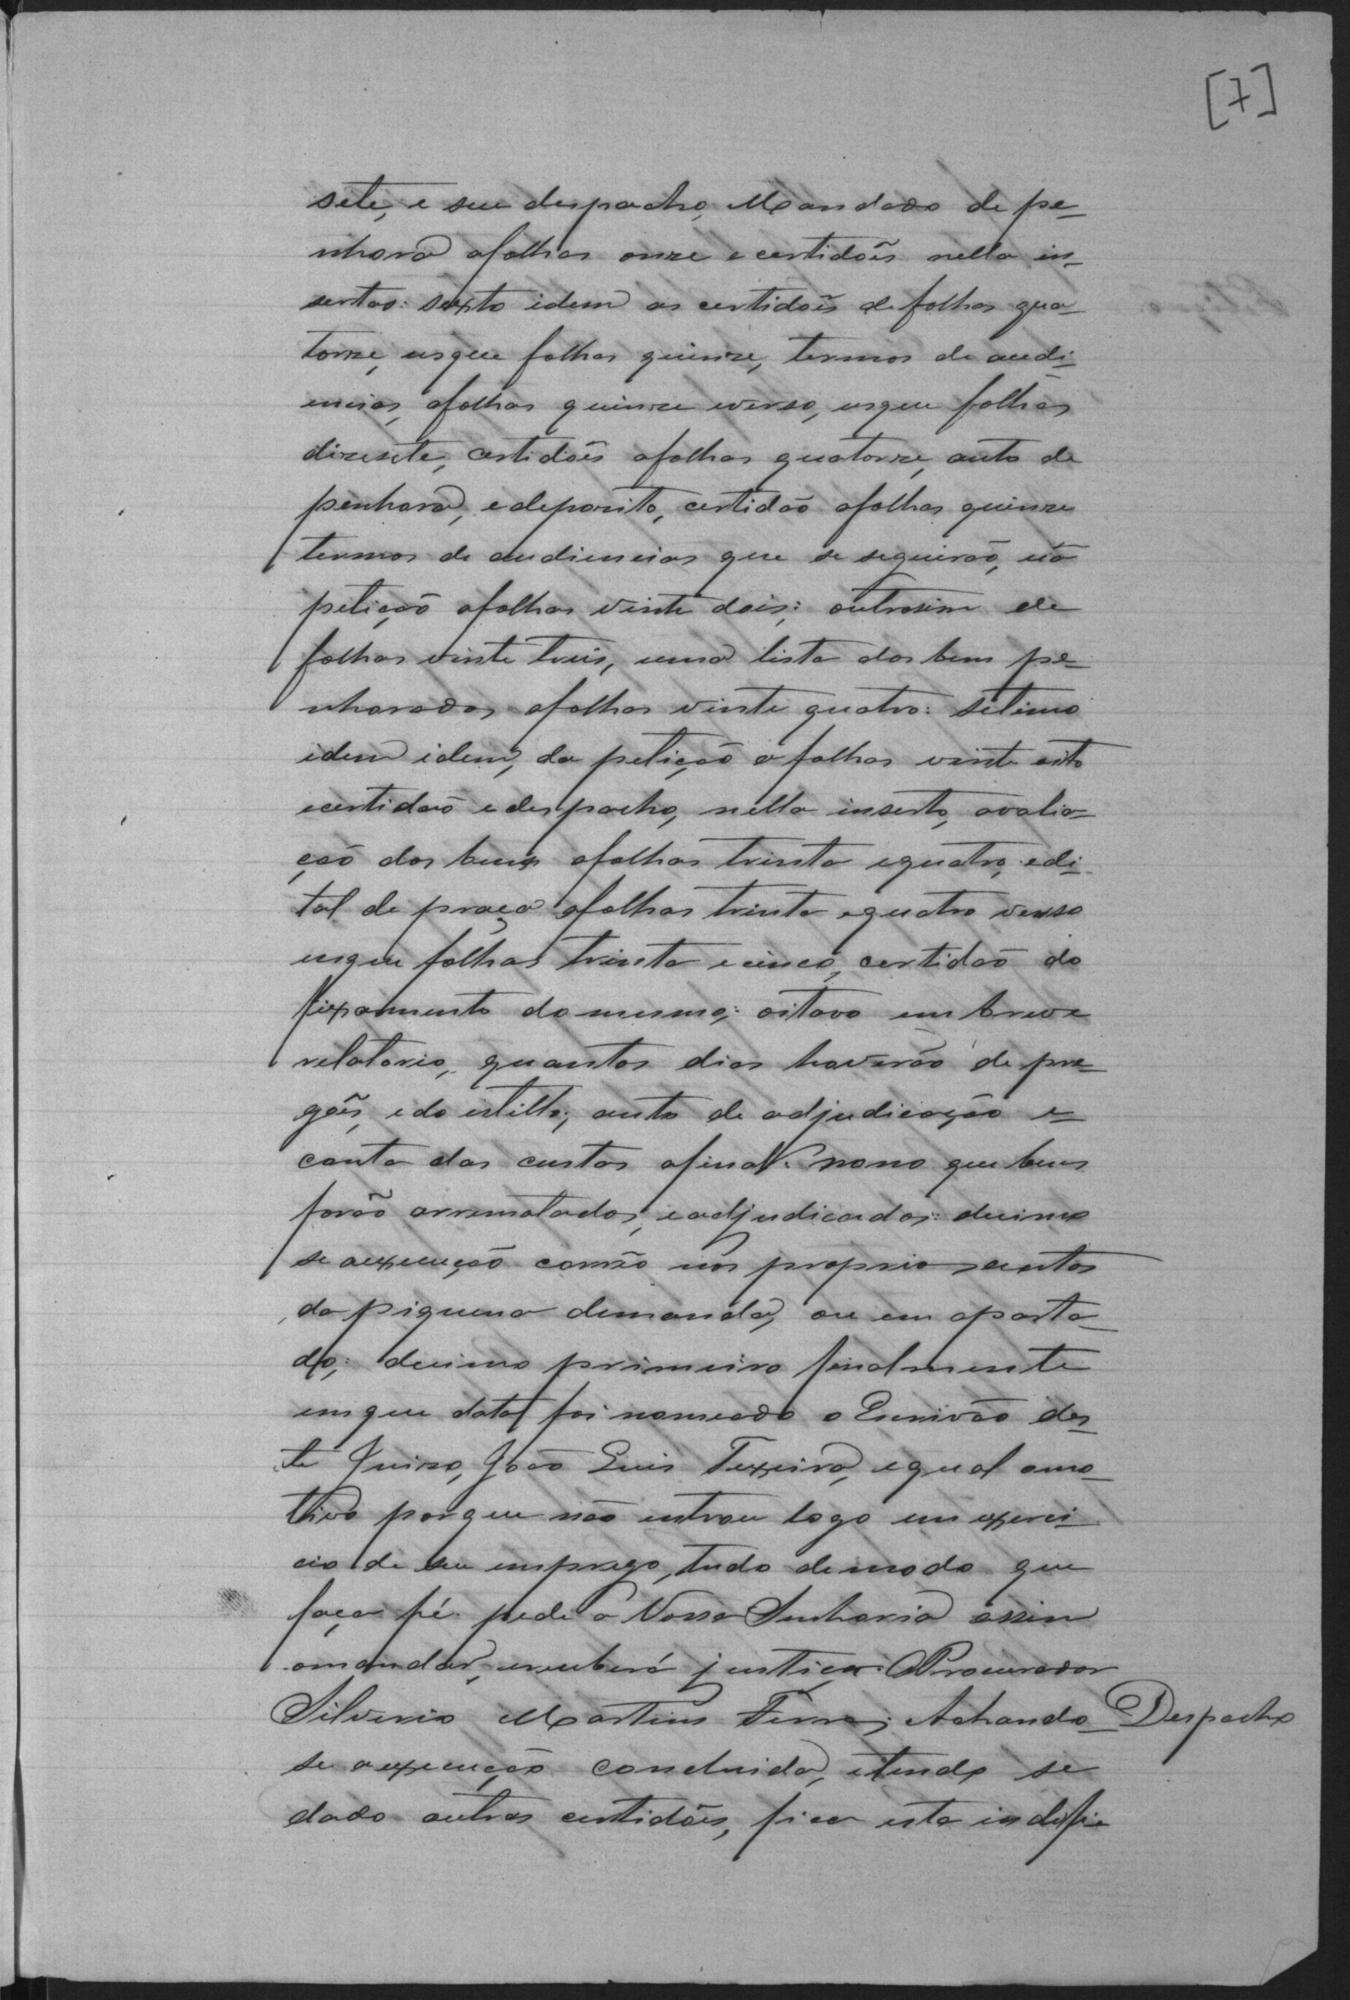 [7]
sete, e seu despacho, Mandado de pe-
nhora afolhas onze e certidoẽs nella in-
sertas: sexto idem as certidoẽs de folhas qua-
torze, usque folhas quinze, termos de audi-
encias, afolhas quinze everso, usque folhas
dizesete, certidoẽs afolhas quatorze, auto de
penhora, edeposito, certidaõ afolhas quinze
termos de audiencias que se seguiraõ, e a
petiçaõ afolhas vinte dois; outrosim de
folhas vinte treis, uma lista dos bens pe-
nhorados, afolhas vinte quatro: setimo
idem idem, da petiçaõ a folhas vinte oito
ecertidaõ edespacho, nella inserto, avalia-
çaõ dos bens afolhas trinta equatro, edi-
tal de praça afolhas trinta equatro verso
usque folhas trinta ecinco, certidaõ do
fixamento do mesmo; oitavo em breve
relatorio, quantos dias haveraõ de pre-
goẽs, e do estillo; auto de adjudicaçaõ e-
conta das custas afinal: nono que bens
foraõ arrematados, eadjudicados: decimo
se aexecuçaõ correo nos proprios autos
da piquena demanda, ou em aparta-
do; decimo primeiro finalmente
emque data foi nomeado o Escrivaõ des-
te Juizo, Joaõ Luis Texeira, equal omo-
tivo porque naõ entrou logo em exerci-
cio de seu emprego, tudo demodo que
faça fé. pede a Vossa Senhoria assim
omandar, erecebera justiça. O Procurador
Silverio Martins Ferra; Achando- Despacho
se aexecuçaõ concluida, etendo se
dado outras certidoẽs, fica esta indefe-